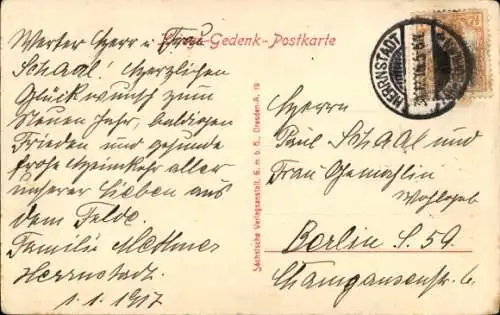 Kriegs-Gedenk-Postkarte
Werter Herr u Frau
Schaal! Herzlichen
Glückwunsch zum
Neuen Jahr, baldigen
Frieden und gesunde
frohe Heimkehr aller
unserer Lieben aus
dem Felde.
Familie
Herrnstadt.
1.1.1917
Sächsische Verlagsanstalt, G. m. b. H., Dresden-A. 19
HERRNSTADT
Herrn
Paul Schaal und
Frau Gemahlin
Wohlgeb
Berlin S. 59.